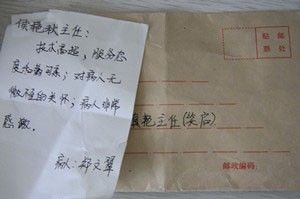 侯艳秋主任:
技术高超,服务态
度尤其可亲;对病人无
微不至的关怀;病人非常
感激。
病人:韩文翠
贴 邮
票 处
艳主任(笑启)
邮政编码: